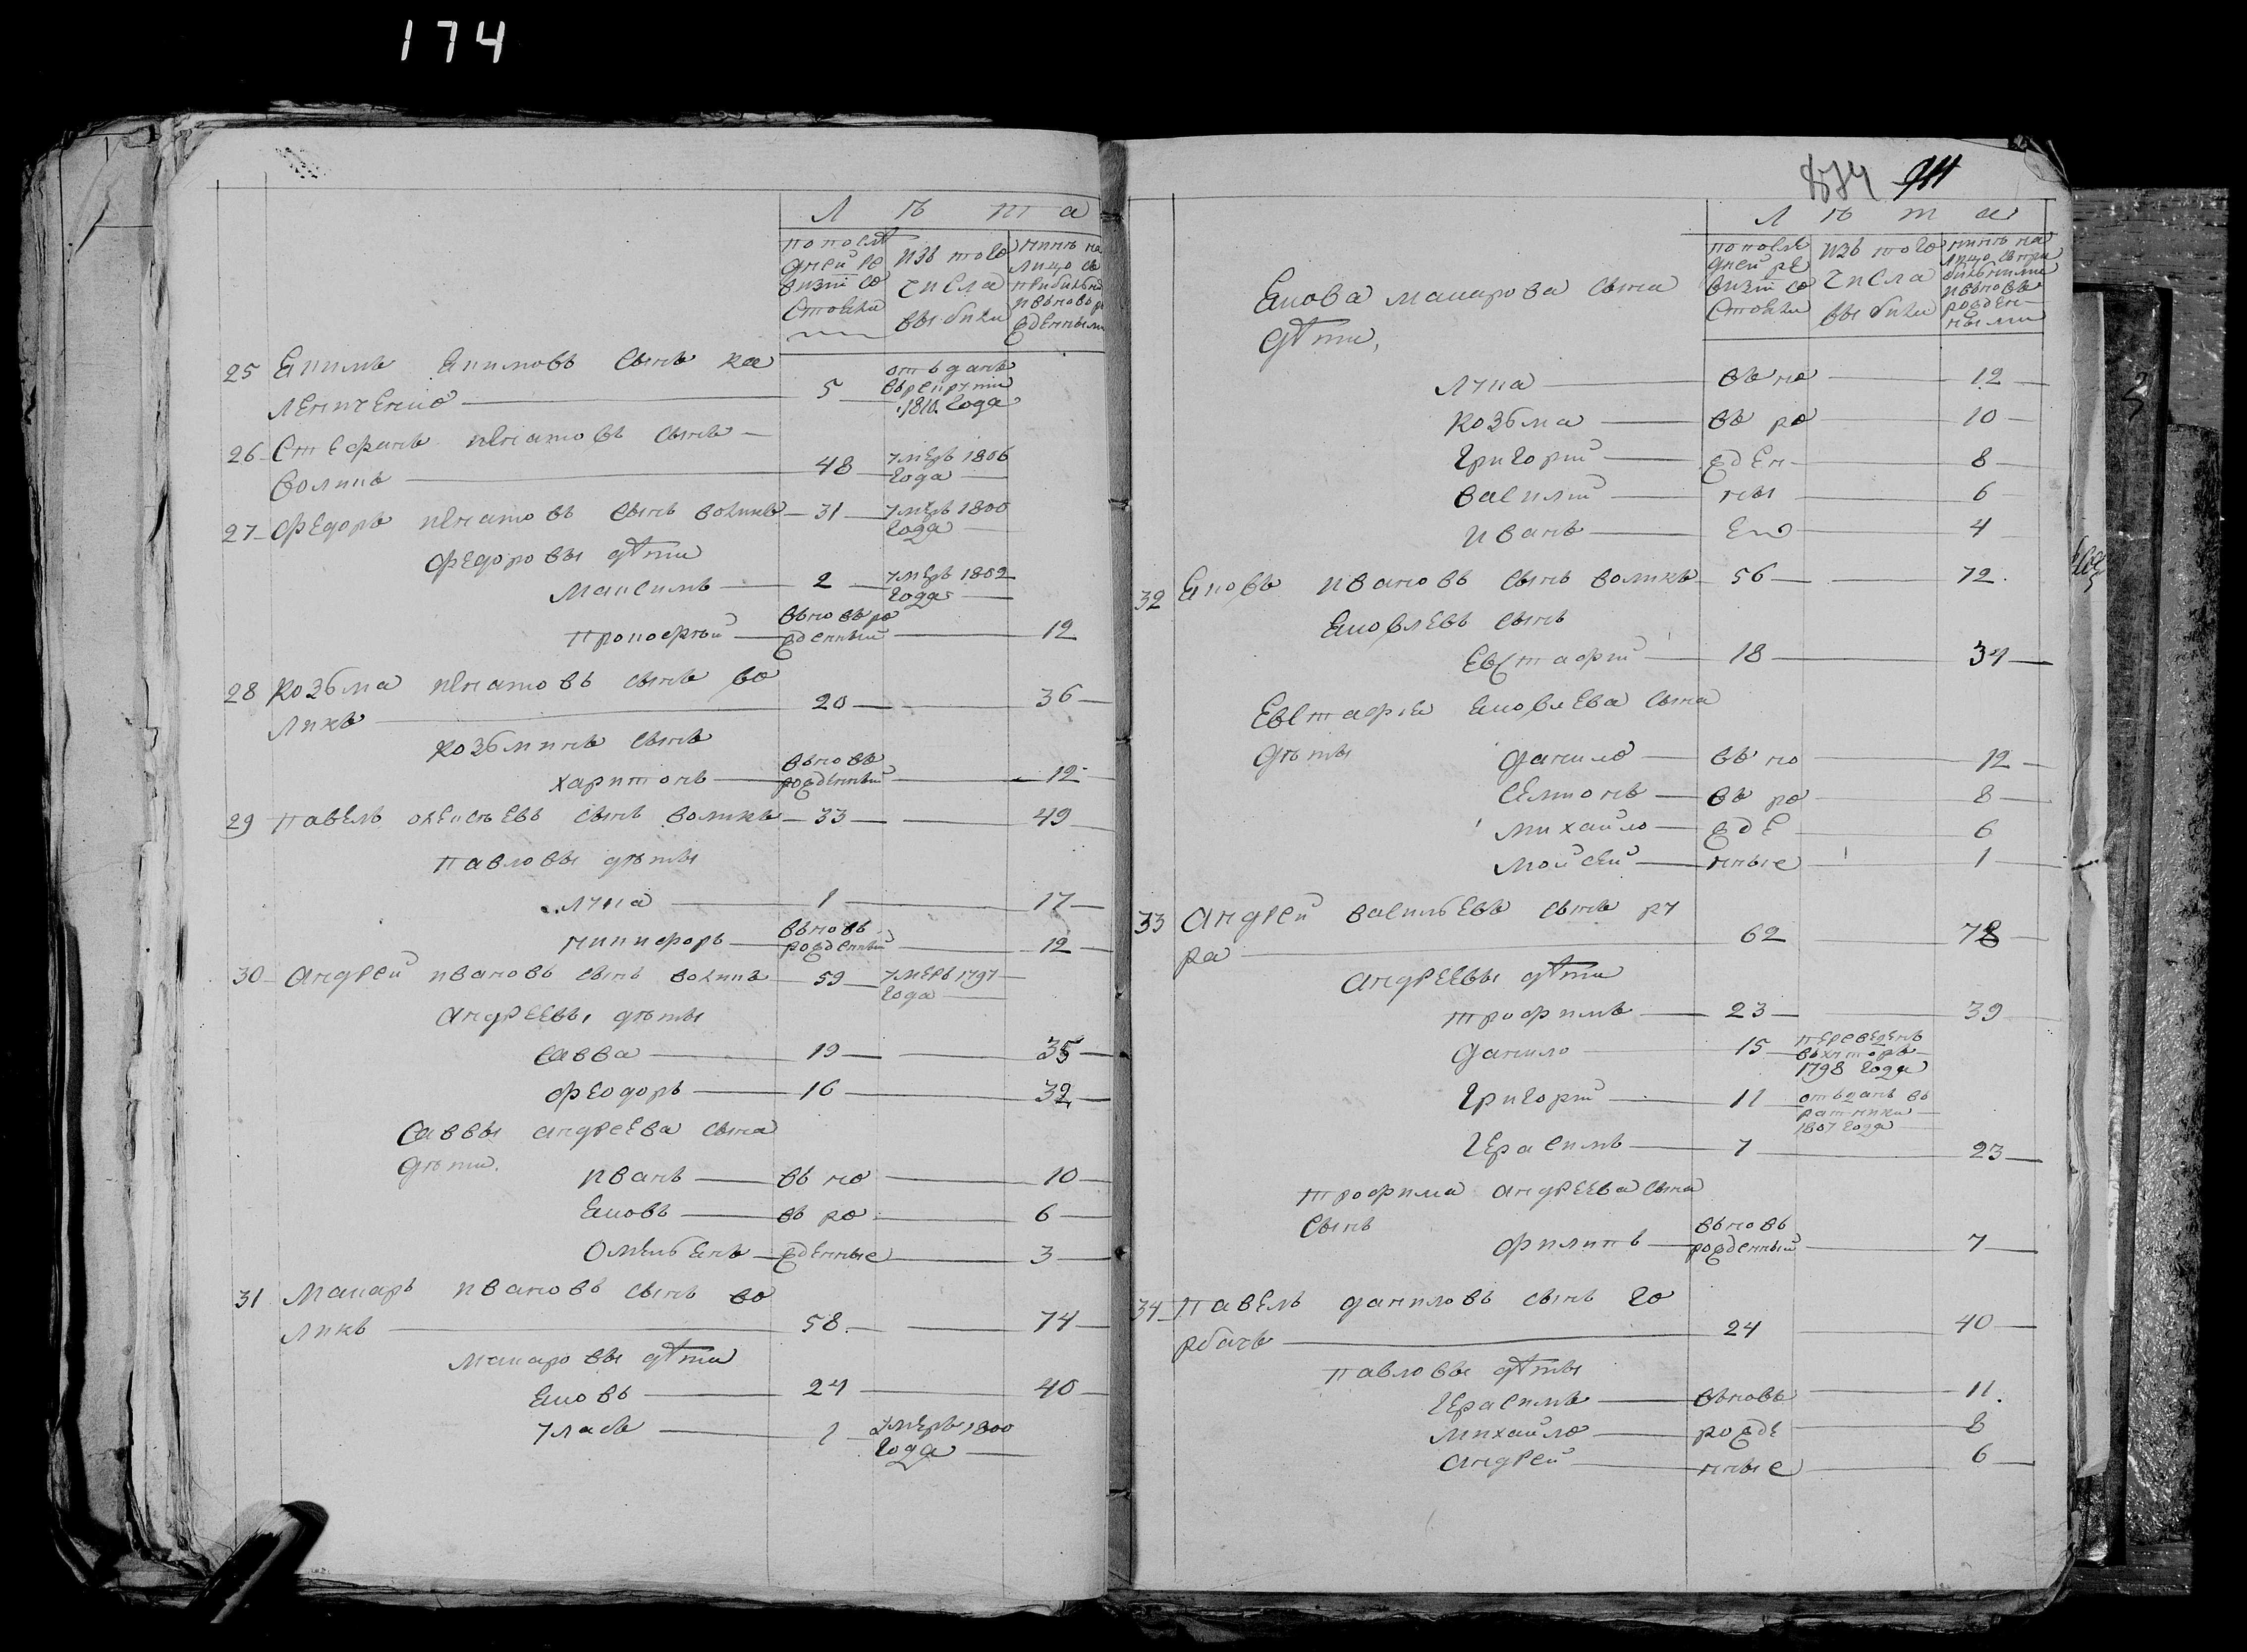 174
Л ѣ т а
по послѣ
дней ре
визiи со
стояли
изъ того
числа
выбыли
нинѣ на
лицо съ
прибылы
и вновь р
жденным
25 Екимъ Екимовъ сынъ ка
лениченко 5 отъданъ
въ рекруты
1810. года
26 Стефанъ игнатовъ сынъ
воликъ 48 умеръ 1806
года
27 Федоръ игнатовъ сынъ воликъ 31 умеръ 1800
года
Федоровы дѣти
Максимъ 2 умеръ 1802
года
Прокофѣй вьновь ро
жденный 12
28 Козьма игнатовъ сынъ во
ликъ 20 36
козьминъ сынъ
харитонъ вьновь
рожденный 12
29 Павелъ сынъ воликъ 33 49
Павловы дѣты
лука 1 17
никифоръ вьновь
рожденный 12
30 Андрей ивановъ сынъ воликъ 59 умеръ 1797
года
Андреевы дѣты
Савва 19 35
Феодоръ 16 32
Саввы андреева сына
дѣти.
иванъ вь но 10
Ековъ вь ро 6
Омельянъ жденные 3
31 Макаръ ивановъ сынъ во
ликъ 58 74
Макаровы дѣти
Ековъ 24 40
Уласъ 1 умеръ 1800
года
874 911
Л ѣ т а
по послѣ
дней ре
визiи со
стояли
изъ того
числа
выбыли
нинѣ на
лицо съ при
былыми
и вьновь
рожден
ными
Екова макарова сына
дѣти,
лука вь но 12
козьма вь ро 10
григорий жден 8
василий ны 6
иванъ 4
32 Ековъ ивановъ сынъ воликъ 56 72.
Ековлевъ сынъ
Евстафий 18 34
ЕвстафiяЕковлева сына
дѣты данило вь но 12
Семионъ вь ро 8
михайло жде 6
мойсей нные 1
33 Андрей васильевъ сынъ ру
ра 62 78
Андреевы дѣти
трофимъ 23 39
данило 15 переведенъ
въ хуторъ
1798 года
григорий 11 отьданъ въ
ратники
1807 года
герасимъ 7 23
трофима андреева сына
сынъ филипъ вьновь
рожденный 7
34 Павелъ даниловъ сынъ го
рбачъ 24 40
Павловы дѣты
герасимъ вьновь 11.
михайло рожде 8
андрей нные 6